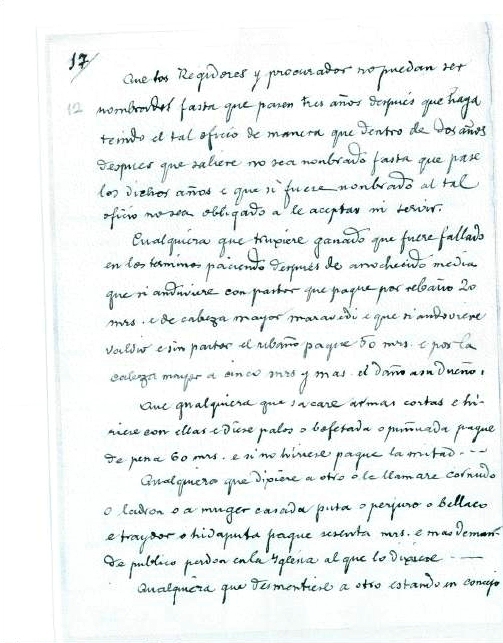 17
Que los Regidores y procurador no puedan ser
12
nombrados fasta que pasen tres años después que haga
tenido el tal oficio de manera que dentro de dos años
despues que saliere no sea nonbrado fasta que pase
los dichos años e que si fuere nonbrado al tal
oficio no sea obligado a le aceptar ni servir.
Cualquiera que truxiere ganado que fuere fallado
en los terminos paciendo después de anochecido media
que si anduviere con pastor que pague por rebaño 20
mrs. e de cabeza mayor maravedi e que si anduviere
valdio e sin pastor el rebaño pague 60 mrs. e por la
cabeza mayor a cinco mrs y mas el daño a su dueño.
Que qualquiera que sacare armas cortas e hi-
riese con ellas e diese palos o bofetada o puñada pague
de pena 60 mrs. e si no hiriese pague la mitad. - -
Cualquiera que dixiere a otro o le llamare cornudo
o ladron o a muger casada puta o perjuro o bellaco
e traydor o hidaputa pague sesenta mrs. e mas deman-
de publico perdon en la Yglesia al que lo dixiese —
Qualquiera que desmentiese a otro estando en concejo